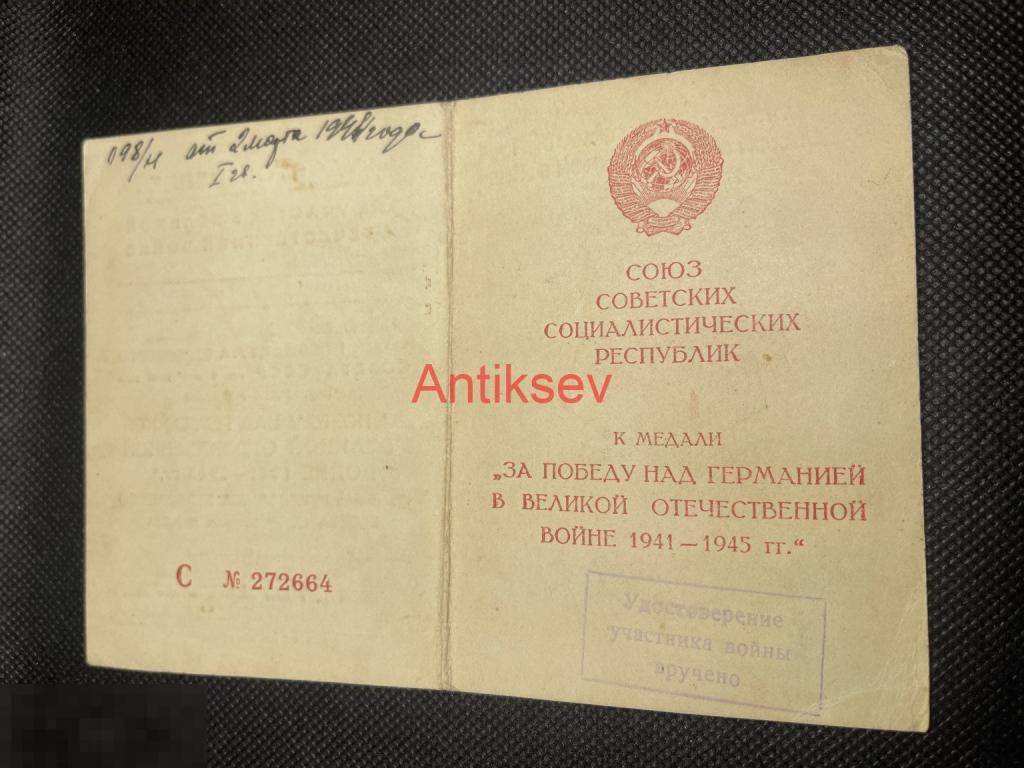 098/н от 2 марта 1948 года
I гв.
С № 272664
СОЮЗ
СОВЕТСКИХ
СОЦИАЛИСТИЧЕСКИХ
РЕСПУБЛИК
Antiksev
К МЕДАЛИ
„ЗА ПОБЕДУ НАД ГЕРМАНИЕЙ
В ВЕЛИКОЙ ОТЕЧЕСТВЕННОЙ
ВОЙНЕ 1941—1945 гг.“
Удостоверение
участника войны
вручено